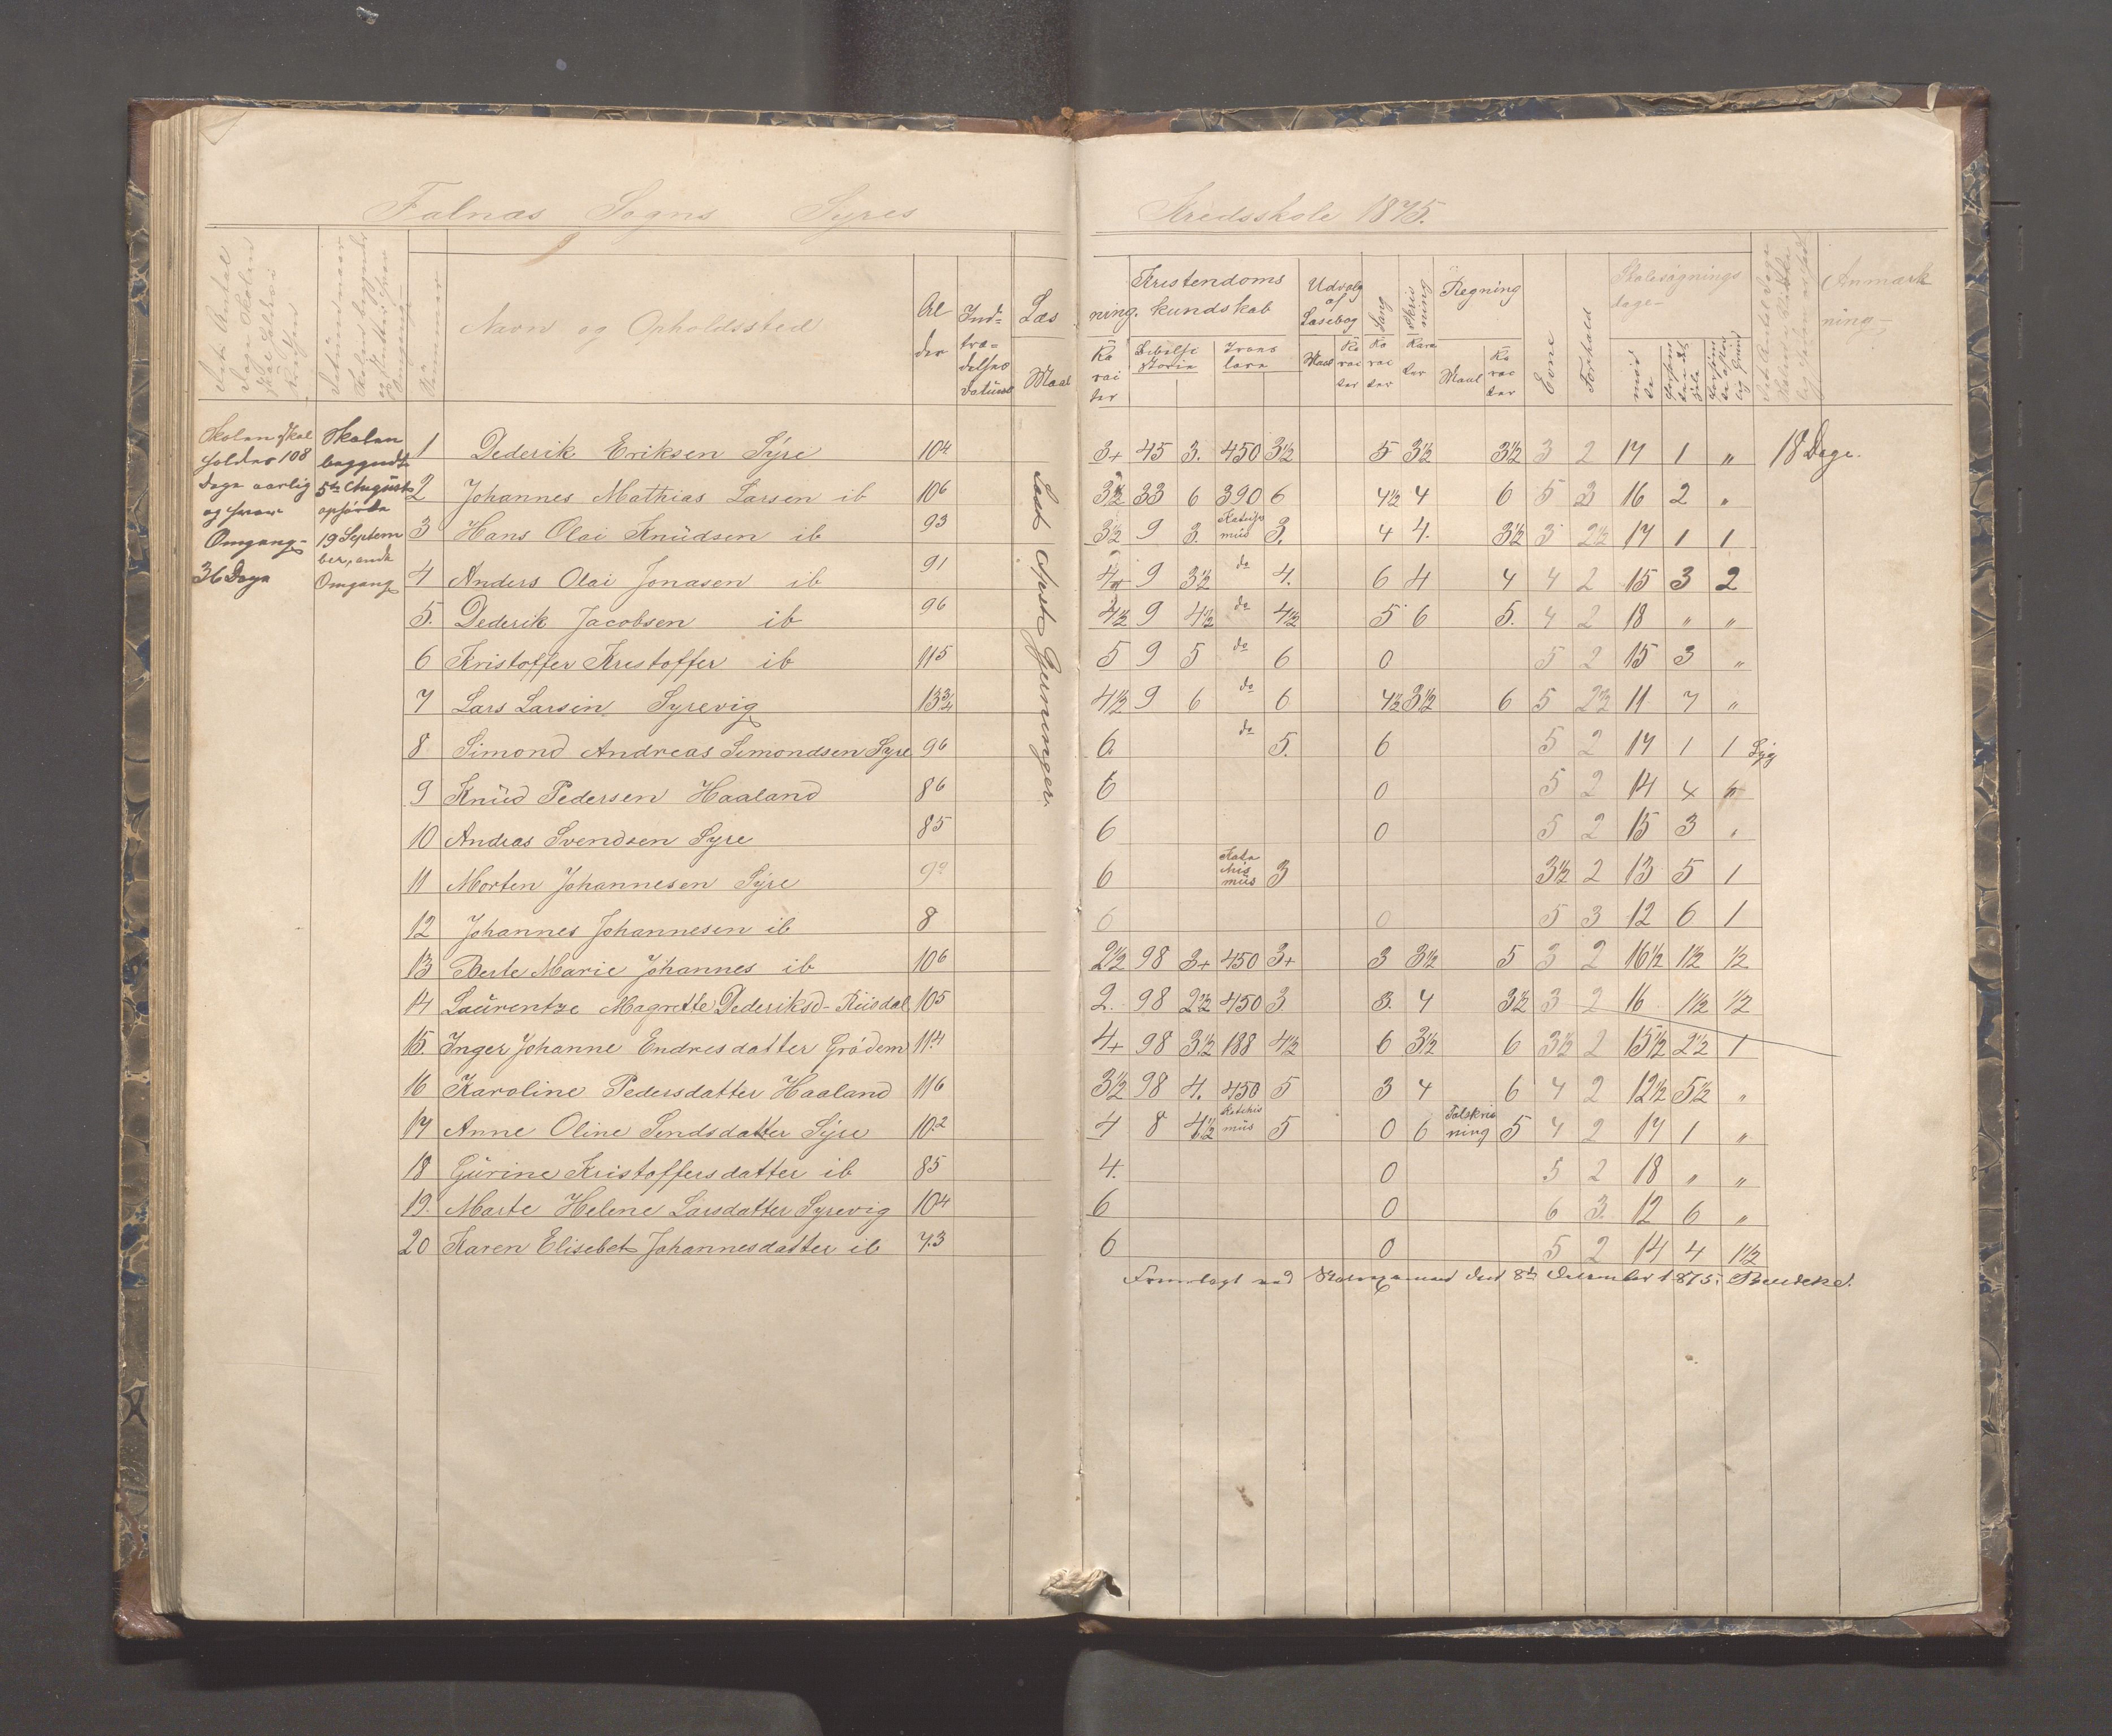 Falnæs Sogns Syres Kredsskole 1875.
Navn og Opholdssted
Al
der
Ind-
træ-
delses
datum
Læs
Maal
ning.
Ka
rac
ter
Kristendoms
kundskab
Bibelhi
storie
Troes
lære
Udvalg
af
Læsebog
Maal
Ka
rac
ter
Sang
Ka
rac
ter
Skriv
ning
Kara
ter
Regning
Maal
Ka
rac
ter
Evne
Forhold
Skolesøgnings
dage
mød
te
Anmærk
ning
Skolen skal
holdes 108
Dage aarlig
og hver
Omgang
36 Dage
Skolen
begyndte
5te August
ophørte
19 Septem
ber, ende
Omgang
Læst Apost Gjerninger.
1 Dederik Eriksen Syre 104 3+ 45 3. 450 3½ 5 3½ 3½ 3 2 17 1 " 18 Dage.
2 Johannes Mathias Larsen ib 106 3½ 33 6 390 6 4½ 4 6 5 3 16 2 "
3 Hans Olai Knudsen ib 93 3½ 9 3. 3. 4 4. 3½ 3 2½ 17 1 1
4 Anders Olai Jonasen ib 91 4+ 9 3½ do 4. 6 4 4 4 2 15 3 2
5. Dederik Jacobsen ib 96 4½ 9 4½ do 4½ 5 6 5. 4 2 18 " "
6 Kristoffer Kristoffer ib 115 5 9 5 do 6 0 5 2 15 3 "
7 Lars Larsin Syrevig 13¾ 4½ 9 6 do 6 4½ 3½ 6 5 2½ 11 7 "
8 Simond Andreas Simondsen Syre 96 6. do 5. 6 5 2 17 1 1 Syg
9 Knud Pedersen Haaland 86 6 0 5 2 14 4 "
10 Andras Svendsen Syre 85 6 0 5 2 15 3 "
11 Morten Johannesen Syre 92 6 Kate
chis
mus 3 3½ 2 13 5 1
12 Johannes Johannesen ib 8 6 0 5 3 12 6 1
13 Berte Marie Johannes ib 106 2½ 98 3+ 450 3+ 3 3½ 5 3 2 16½ 1½ ½
14 Laurentze Magrette Dederiksd- Riisdal 105 2. 98 2½ 450 3. 3. 4 3½ 3 2 16 1½ ½
15. Inger Johanne Endresdatter Grødem 11.4 4+ 98 3½ 188 4½ 6 3½ 6 3½ 2 15½ 2½ 1
16 Karoline Pedersdatter Haaland 116 3½ 98 4. 450 5 3 4 6 4 2 12½ 5½ "
17 Anne Oline Sendsdatter Syre 10.2 4 8 4½ Katchis
mus 5 0 6 Talskriv
ning 5 4 2 17 1 "
18 Gurine Kristoffersdatter ib 85 4. 0 5 2 18 " "
19. Marte Helene Larsdatter Syrevig 104 6 0 6 3. 12 6 "
20 Karen Elisebet Johannesdatter ib 7.3 6 0 5 2 14 4 1½
Fremlagt ved Skoleexamen den 8de December 1875.